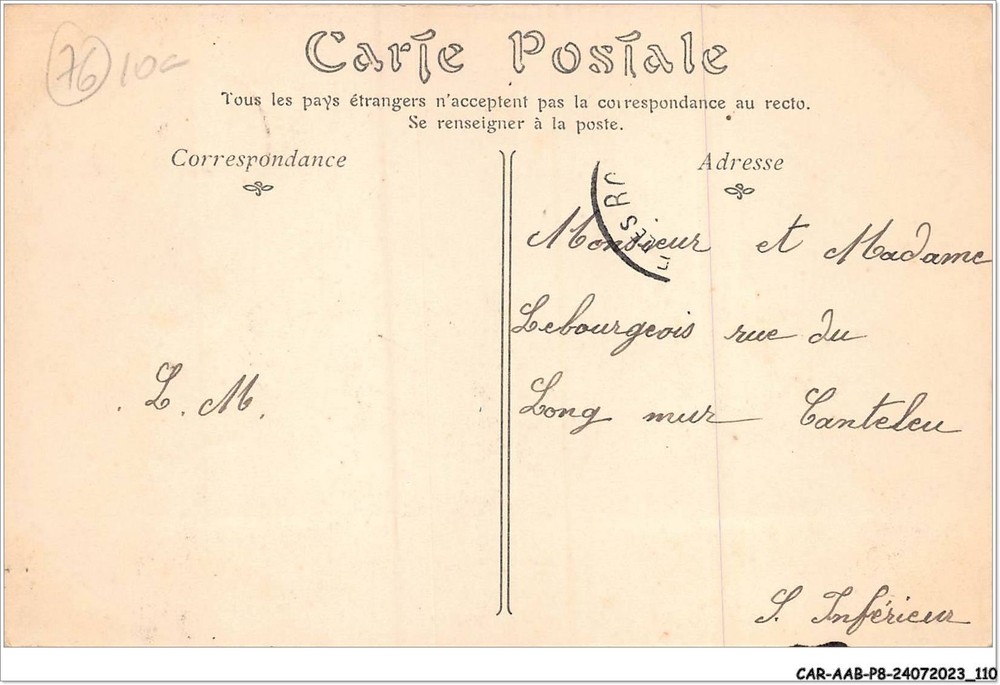 76 10€
Carte Postale
Tous les pays étrangers n'acceptent pas la correspondance au recto.
Se renseigner à la poste.
Correspondance
L. M.
Adresse
Monsieur et Madame
Lebourgeois rue du
Long mur Canteleu
S. Inférieur
CAR-AAB-P8-24072023_110